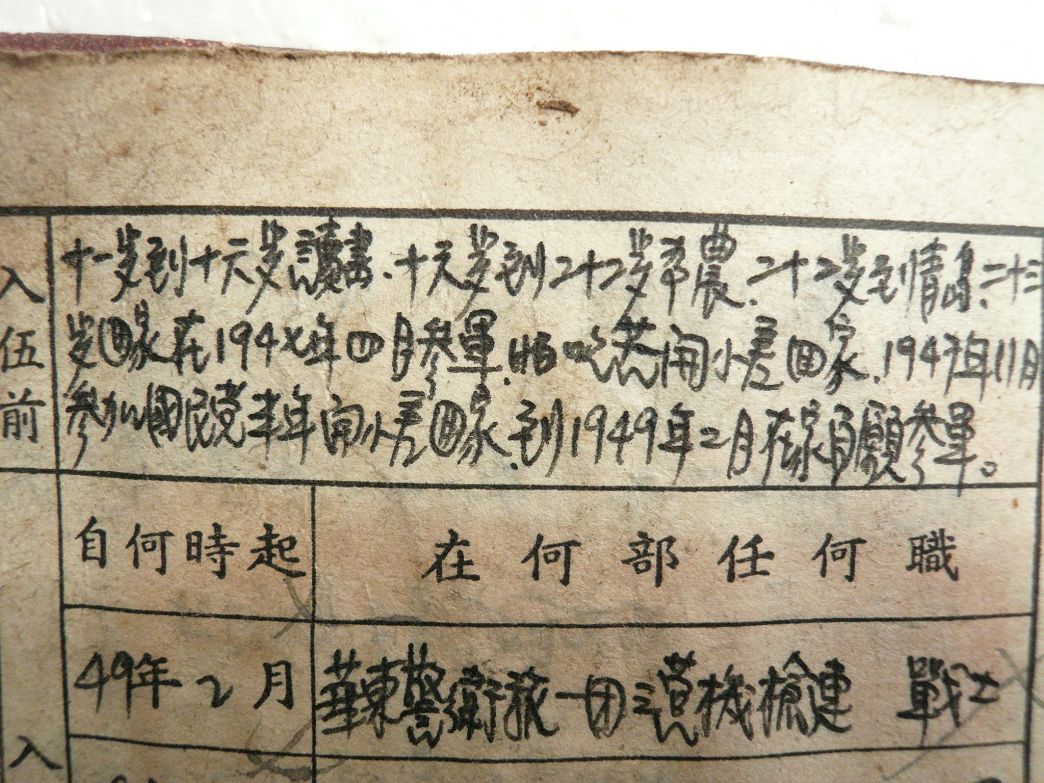 入伍前
十一岁到十六岁讀書.十六岁到二十二岁帮農.二十二岁到青島.二十三
岁回家在1947年四月参軍.吃苦開小差回家.1947年11月
参加國民党半年開小差回家.到1949年二月在家自願参軍。
自何時起 在何部任何職
49年2月 華東警衛旅一团三营機槍連 戰士
入